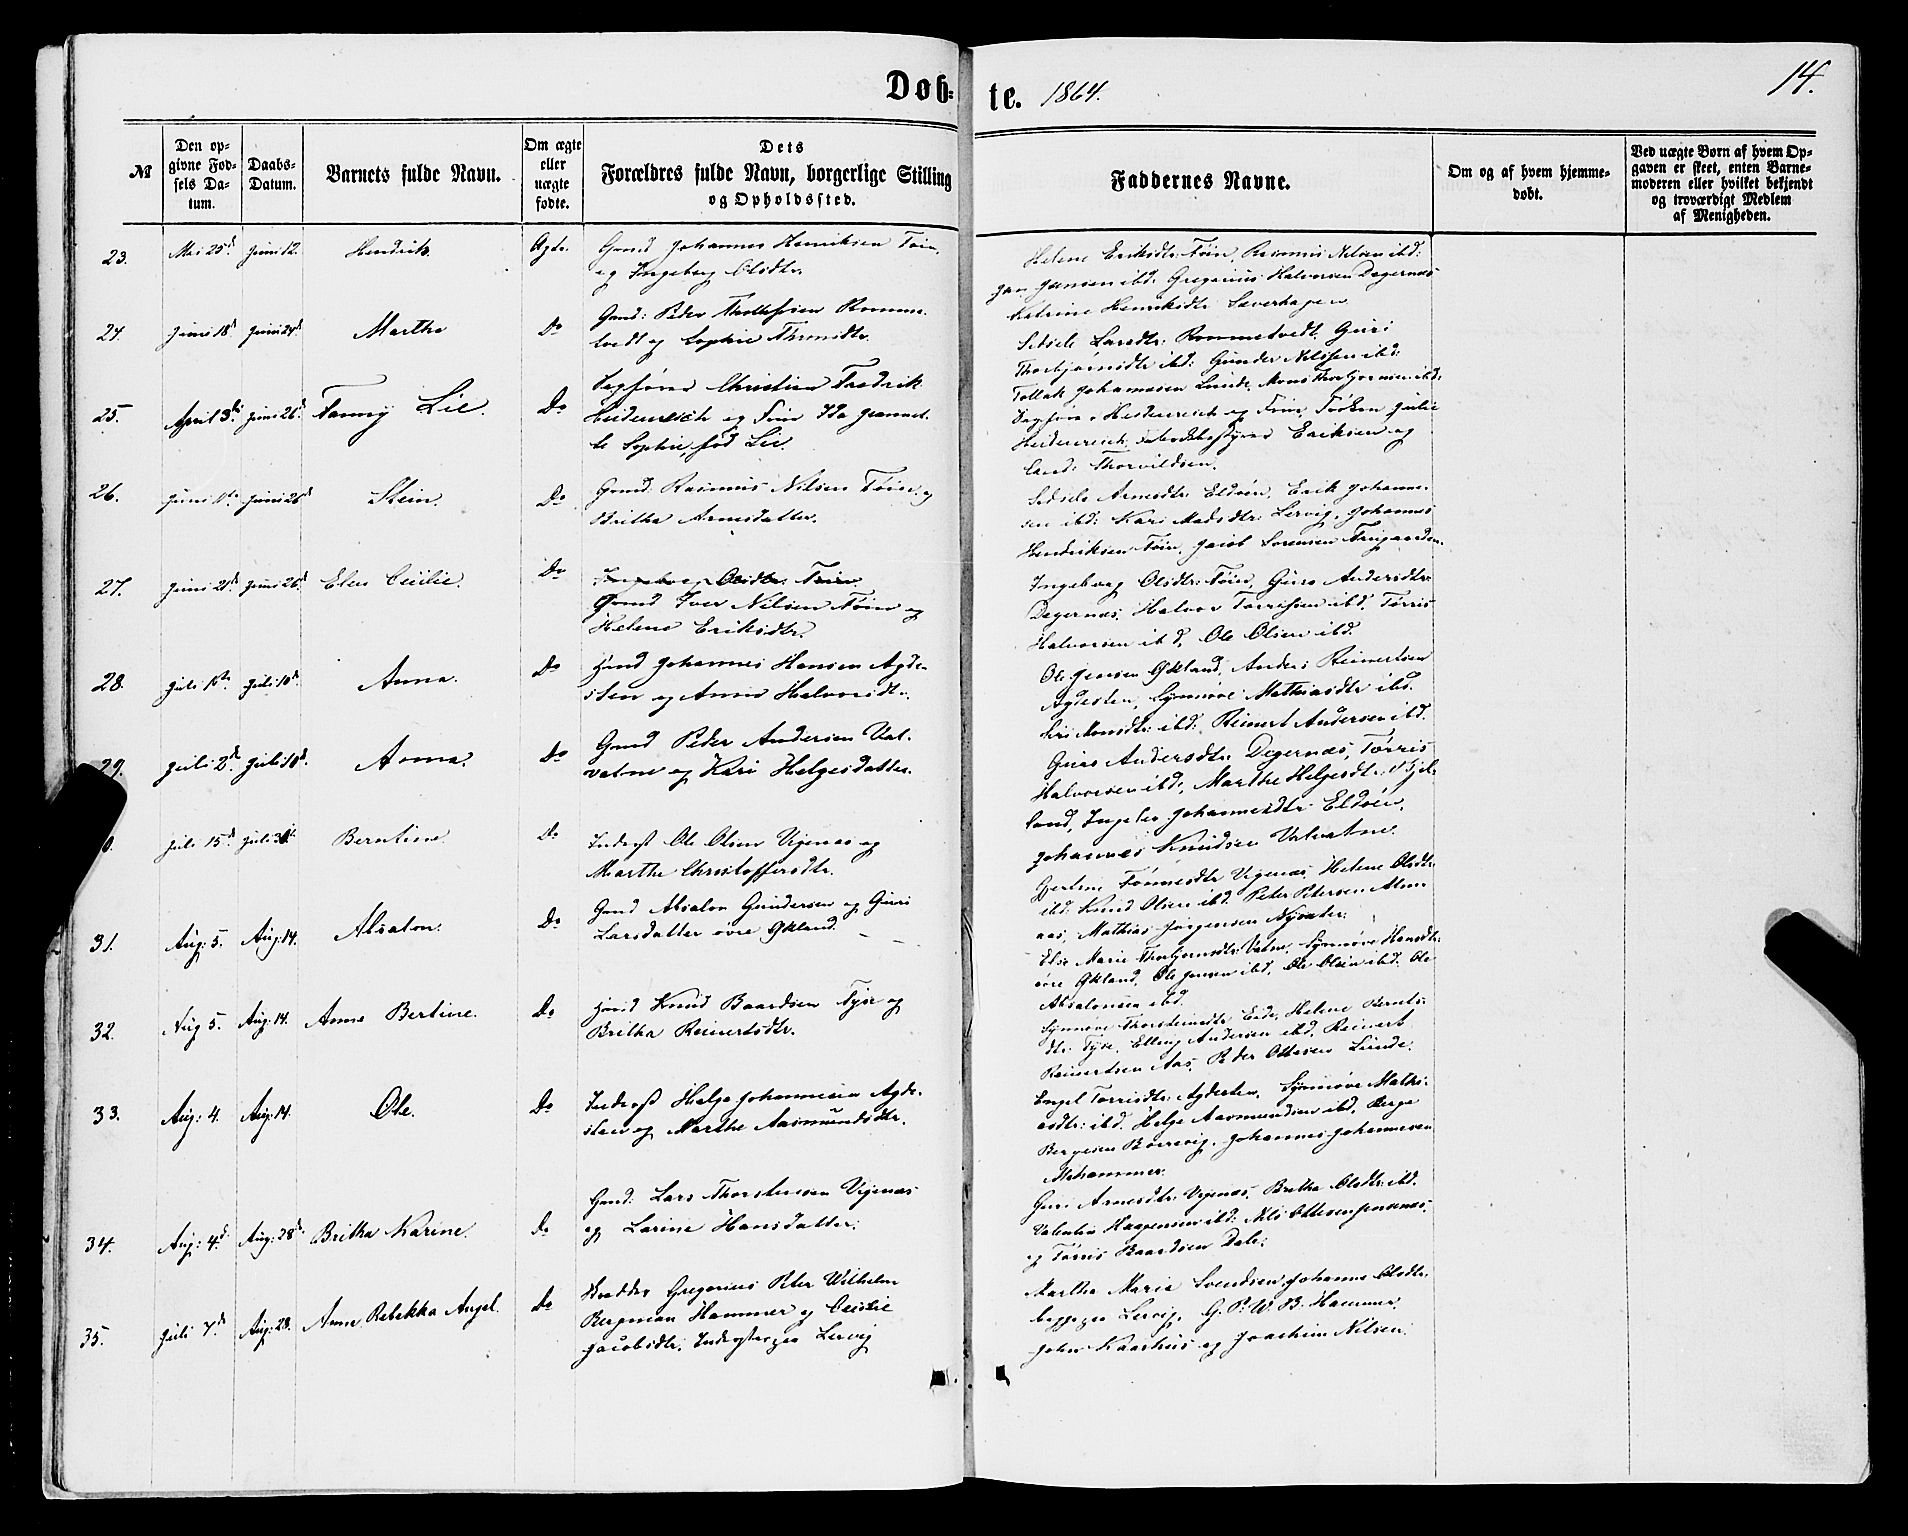 Døb-
te. 1864.
14.
№
Den op-
givne Fød-
sels Da-
tum.
Daabs-
Datum.
Barnets fulde Navn.
Om ægte
eller
uægte
fødte.
Dets
Forældres fulde Navn, borgerlige Stilling
og Opholdssted.
Faddernes Navne.
Om og af hvem hjemme-
døbt.
Ved uægte Børn af hvem Op-
gaven er skeet, enten Barne-
moderen eller hvilket bekjendt
og troværdigt Medlem
af Menigheden.
23. Mai 25d Juni 12. Hendrik. Ægte. Gmd Johannes Henriksen Tøin,
og Ingeborg Olsdtr.
Helene Eriksdtr: Tøin, Rasmus Nilsen ibd:
Jan Jansen ibd: Gregorius Halvorsen Degernæs
Katrine Henriksdtr:
24. Juni 18d Juni 24d. Marthe Do Gmd: Peder Thollefsen Romme-
tvedt og Sophie
Sidsele Larsdtr: Rommetvedt, Guri
Thorbjørnsdtr ibd: Gunder Nilssen ibd:
Tollak Johannesen Lunde, Mons Thorbjørnsen ibd:
25. April 3die Juni 26d Fanny Lie. Do Sagfører Christian Fredrik
Heidenreich og Frue Ida Jeannet-
te Sophie, fød Lie.
Sagfører Heidenreich og Frue, Frøken Julie
Heidenreich, Eriksen og
Cand: Thorvildsen.
26. Juni 11te Juni 26d Stein. Do Gmd: Rasmus Nilsen Tøin og
Britha Arnesdatter.
Sidsele Arnesdtr: Eldøen, Erik Johanne-
sen ibd: Kari Madsdtr: Lervig, Johannes
Hendriksen Tøin, Jacob Sørensen
27. Juni 21d Juni 26d. Elen Cecilie. Do Ingeborg Olsdtr. Tøin.
Gmd Iver Nilsen Tøin og
Helene Eriksdtr.
Ingeborg Olsdtr: Tøin, Guro Andersdtr:
Degernæs, Halvor Tørrissen ibd, Tørris
Halvorsen ibd, Ole Olsen ibd.
28. Juli 1te. Juli 10d. Anna. Do Hmd Johannes Hansen Agde-
sten og Anne Halvorsdtr.
Ole Jensen Økland, Anders Reinertsen
Agdesten, Synnøve Mathiasdtr ibd.
Siri Monsdtr: ibd: Reinert Andersen ibd.
29. Juli 2d. Juli 10d. Anna. Do Gmd Peder Andersen Val-
vatne og Kari Helgesdatter.
Guro Andersdtr: Degernæs, Tørris
Halvorsen ibd, Marthe Helgesdtr:
land, Ingeler Johannesdtr: Eldøen,
Johannes Knudsen Valvatne.
0. Juli 15d Juli 31. Berntine. Do Inderst Ole Olsen Vigenæs og
Marthe Christoffersdtr.
Gjertine Tønnesdtr Vigenæs, Helene Olsdtr:
ibd: Knud Olsen ibd. Peter Petersen
aas, Mathias Jørgensen
31. Aug: 5. Aug: 14. Absalon. Do Gmd Absalon Gundersen og Guri
Larsdatter øvre Økland.
Else Marie Thorbjørnsdtr: Vatne, Synnøve Hansdtr:
øvre Økland, Ole Jensen ibd, Ole Olsen ibd. Ole
Absalonsen ibd.
32. Aug 5. Aug: 14. Anne Bertine. Do Hmd Knud Baardsen Tyse og
Britha Reinertsdtr.
Synnøve Thorsteinsdtr Eide, Helene Bernts-
dtr: Tyse, Elling Andersen ibd, Reinert
Reinertsen Aas, Peder Ottesen Lunde.
33. Aug: 4. Aug: 14. Ole. Do Inderst Helge Johannesen Agde-
sten og Marthe Aasmundsdtr.
Engel Tørrisdtr: Agdesten, Synnøve Mathi-
asdtr: ibd. Helge Aasmundsen ibd, Børge
Børgesen Børrevig, Johannes Johannesen
Mehammer.
34. Aug: 4d. Aug: 28d. Britha Karine. do Gmd: Lars Thorstensen Vigenæs
og Larine Hansdatter.
Guri Arnesdtr: Vigenæs, Britha Olsdtr: ibd.
Valentin Haagensen ibd: Nils Ottesen
og Tørris Baardsen Dale.
35. Juli 7.d Aug: 28. Anne Rebekka Angel. do Gregorius Peter Wilhelm
Bergman Hammer og Cecilie
Jacobsdtr, Inderster paa Lervig
Martha Marie Svendsen, Johanne Olsdtr:
begge paa Lervig, G. P. W. B. Hammer,
John Kaarhus og Joachim Nilsen.